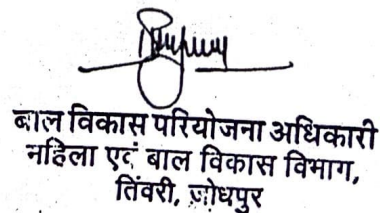 बाल विकास परियोजना अधिकारी
महिला एवं बाल विकास विभाग,
तिंवरी, जोधपुर